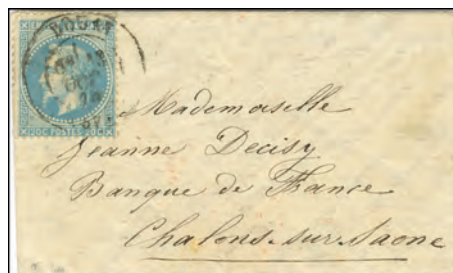 DOUAI
20C POSTES 20C
Mademoiselle
Jeanne Decisy
Banque de France
Chalons-sur-Saone